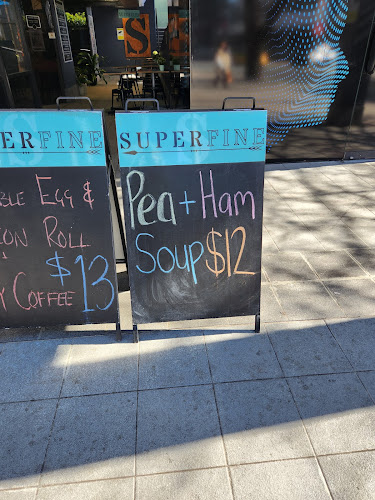 ERFINE
BLE EGG &
ON ROLL
$13
Y COFFEE
SUPERFINE
Pea + Ham
Soup $12
S